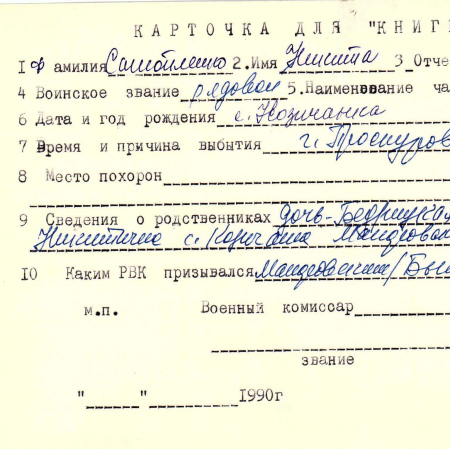 КАРТОЧКА ДЛЯ "КНИГ
1 Фамилия Самойленко 2.Имя Никита 3 Отче
4 Воинское звание рядовой 5.Наименование ча
6 Дата и год рождения с.
7 Время и причина выбытия г. Проскуров
8 Место похорон
9 Сведения о родственниках дочь-
Никитична с.
10 Каким РВК призывался
м.п. Военный комиссар
звание
"_____"_________1990г